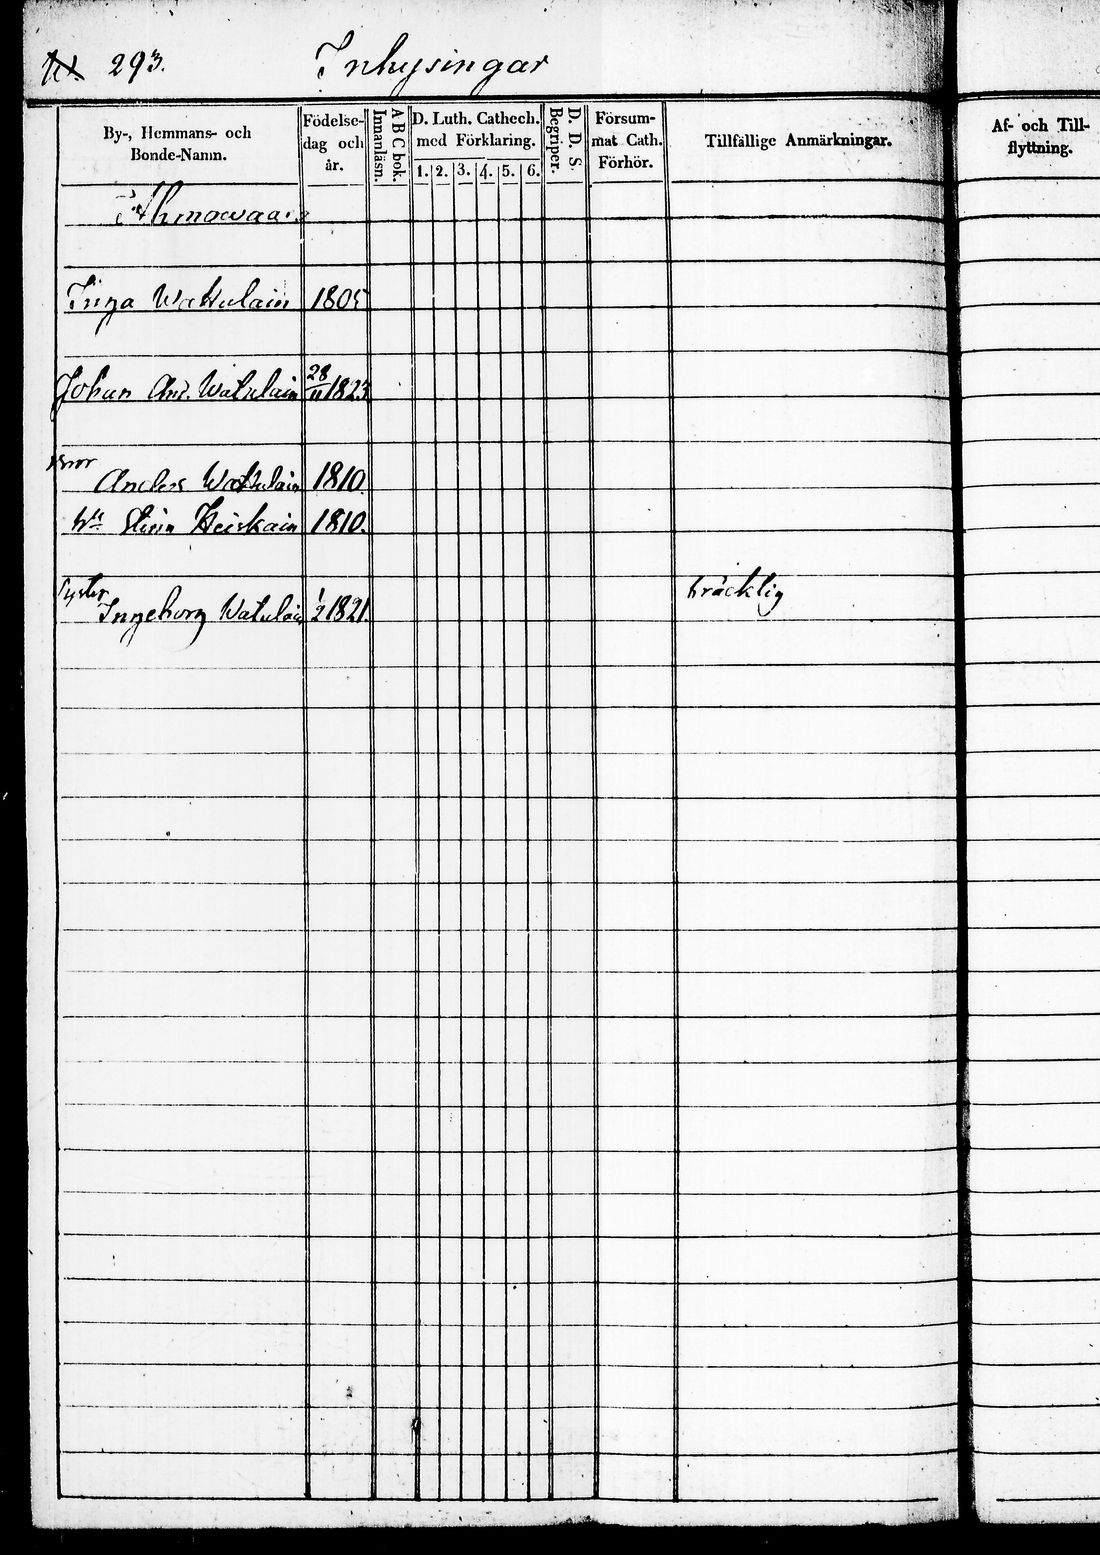 293. Inhysingar
By-, Hemmans- och Bonde-Namn.
Födelse-dag och år.
A B C bok. Innanläsn.
D. Luth. Cathech. med Förklaring.
1. 2. 3. 4. 5. 6.
D. D. S. Begriper.
Försum-mat Cath. Förhör.
Tillfällige Anmärkningar.
Af- och Till-flyttning.
Inga Watulain 1805
Johan And. Watulain 28/11 1823
Bror
Anders Watulain 1810
Hu Stina Heiskain 1810.
Syster bräcklig
Ingeborg Watulain 1/2 1821.